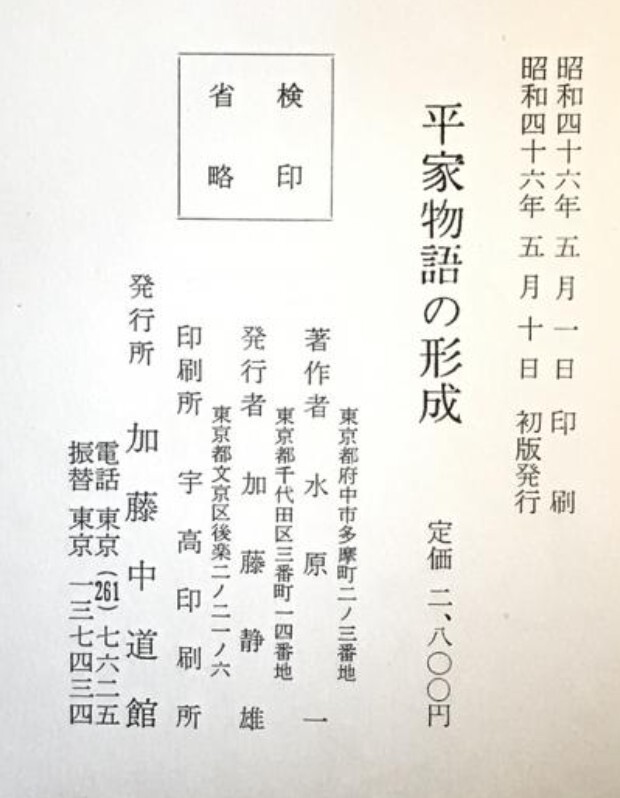 昭和四十六年五月一日　印刷
昭和四十六年五月十日　初版発行
平家物語の形成　定価　二、八〇〇円
検印
省略
東京都府中市多摩町二ノ三番地
著作者　水原一
東京都千代田区三番町一四番地
発行者　加藤静雄
東京都文京区後楽二ノ二一ノ六
印刷所　宇高印刷所
発行所　加藤中道館
電話　東京（261）七六二五
振替　東京　一三七四三四